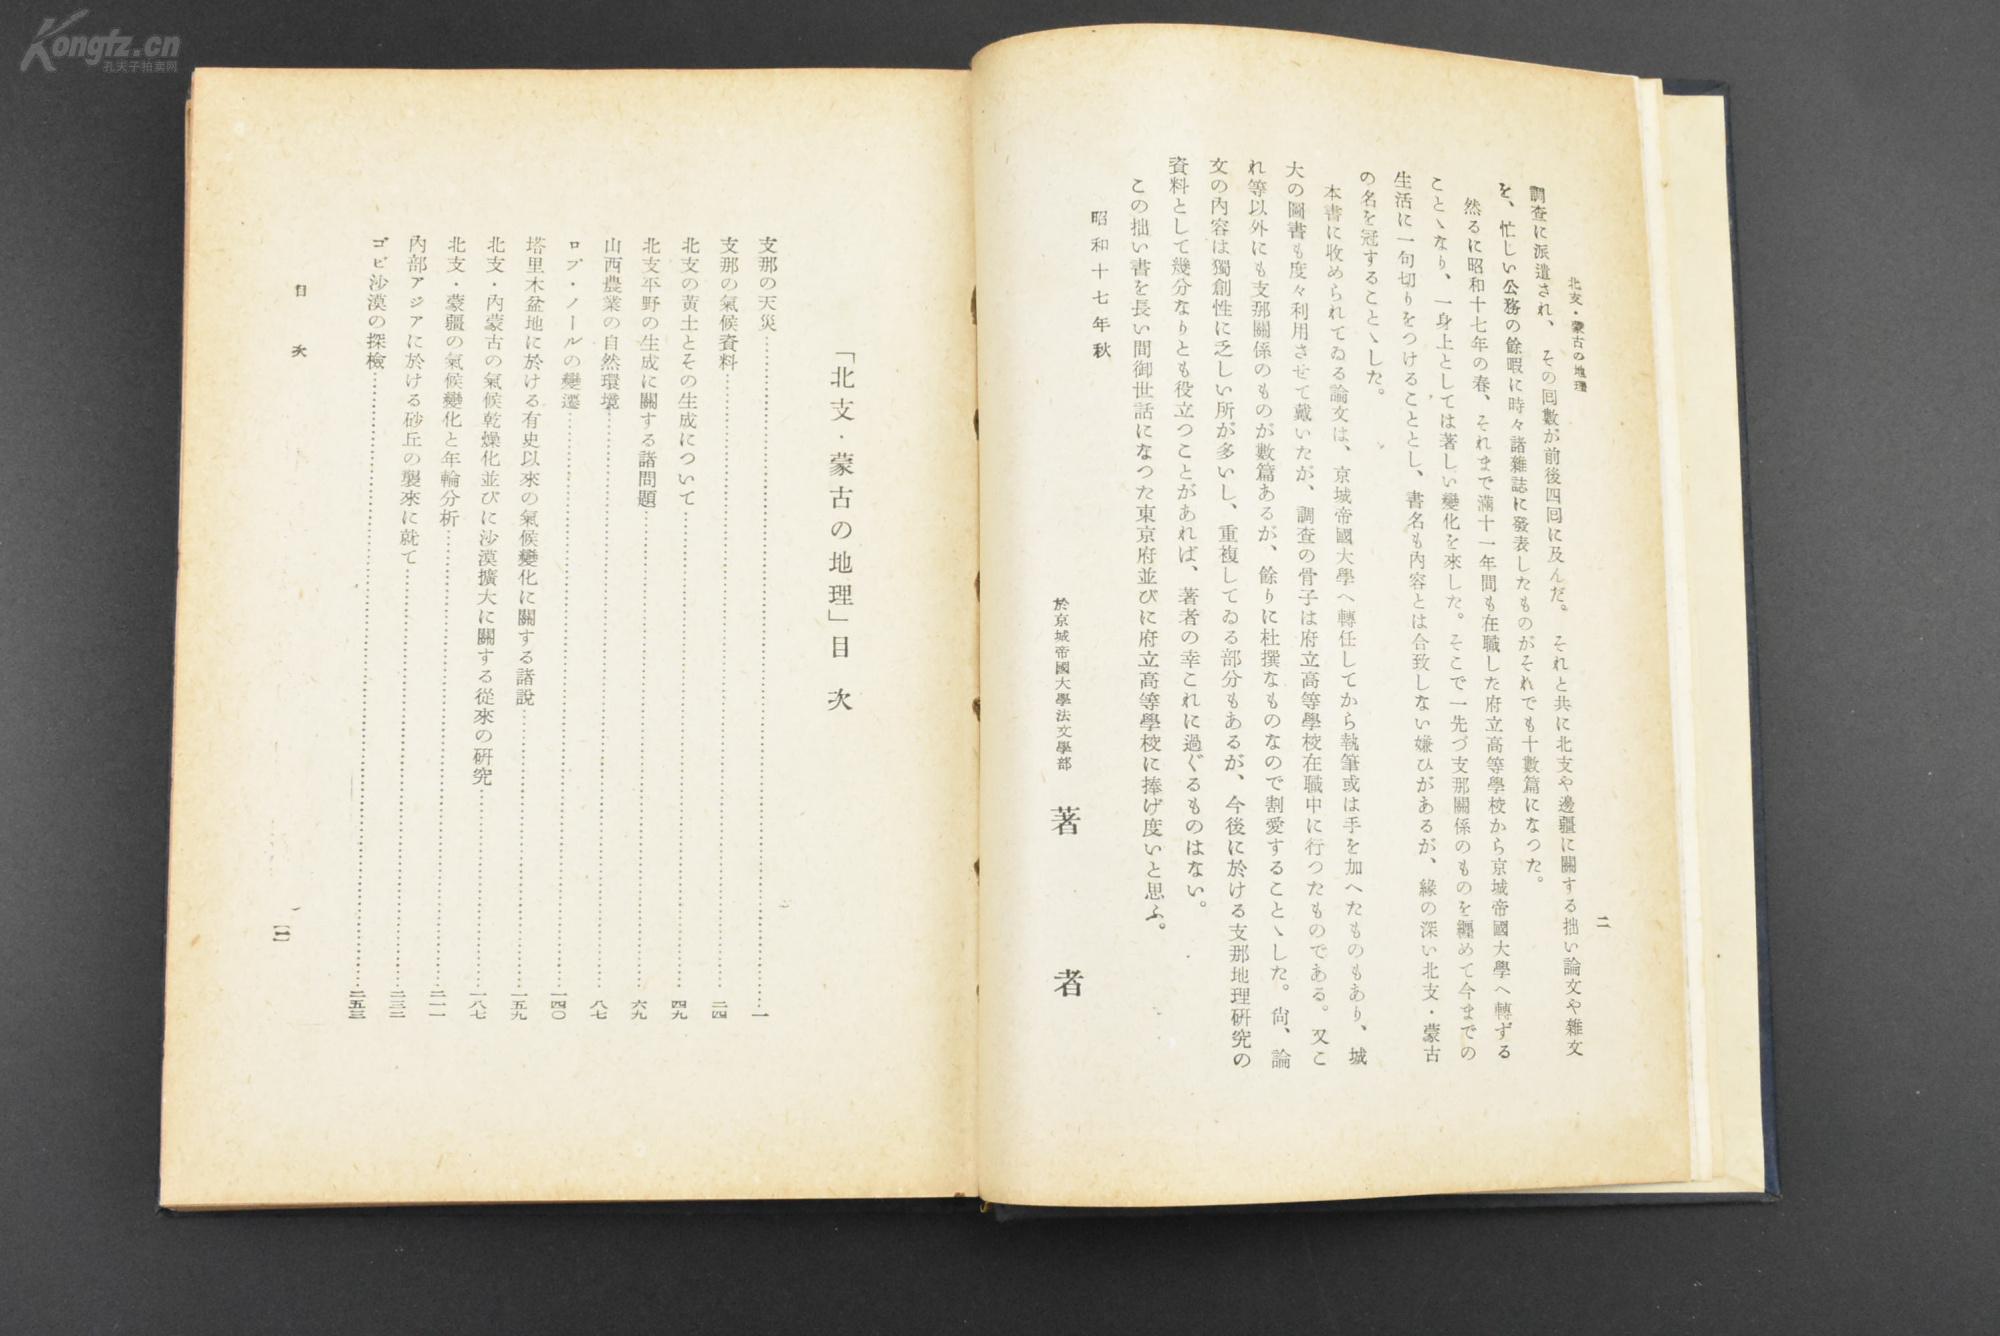 北支・蒙古の地理
二
調査に派遣され、その回數が前後四回に及んだ。それと共に北支や邊疆に關する拙い論文や雜文
を、忙しい公務の餘暇に時々諸雜誌に發表したものがそれでも十數篇になつた。
然るに昭和十七年の春、それまで滿十一年間も在職した府立高等學校から京城帝國大學へ轉ずる
ことゝなり、一身上としては著しい變化を來した。そこで一先づ支那關係のものを纒めて今までの
生活に一句切りをつけることとし、書名も內容とは合致しない嫌ひがあるが、緣の深い北支・蒙古
の名を冠することゝした。
本書に收められてゐる論文は、京城帝國大學へ轉任してから執筆或は手を加へたものもあり、城
大の圖書も度々利用させて戴いたが、調査の骨子は府立高等學校在職中に行つたものである。又こ
れ等以外にも支那關係のものが數篇あるが、餘りに杜撰なものなので割愛することゝした。尙、論
文の內容は獨創性に乏しい所が多いし、重複してゐる部分もあるが、今後に於ける支那地理硏究の
資料として幾分なりとも役立つことがあれば、著者の幸これに過ぐるものはない。
この拙い書を長い間御世話になつた東京府並びに府立高等學校に捧げ度いと思ふ。
昭和十七年秋
於京城帝國大學法文學部
著者
「北支・蒙古の地理」目次
支那の天災……一
支那の氣候資料……二四
北支の黃土とその生成について……四九
北支平野の生成に關する諸問題……六九
山西農業の自然環境……八七
ロプ・ノールの變遷……一四〇
塔里木盆地に於ける有史以來の氣候變化に關する諸說……一五九
北支・內蒙古の氣候乾燥化並びに沙漠擴大に關する從來の硏究……一八七
北支・蒙疆の氣候變化と年輪分析……二一一
內部アジアに於ける砂丘の襲來に就て……二三二
ゴビ沙漠の探檢……二五三
目次
〔一〕
Kongfz.cn
孔夫子拍卖网